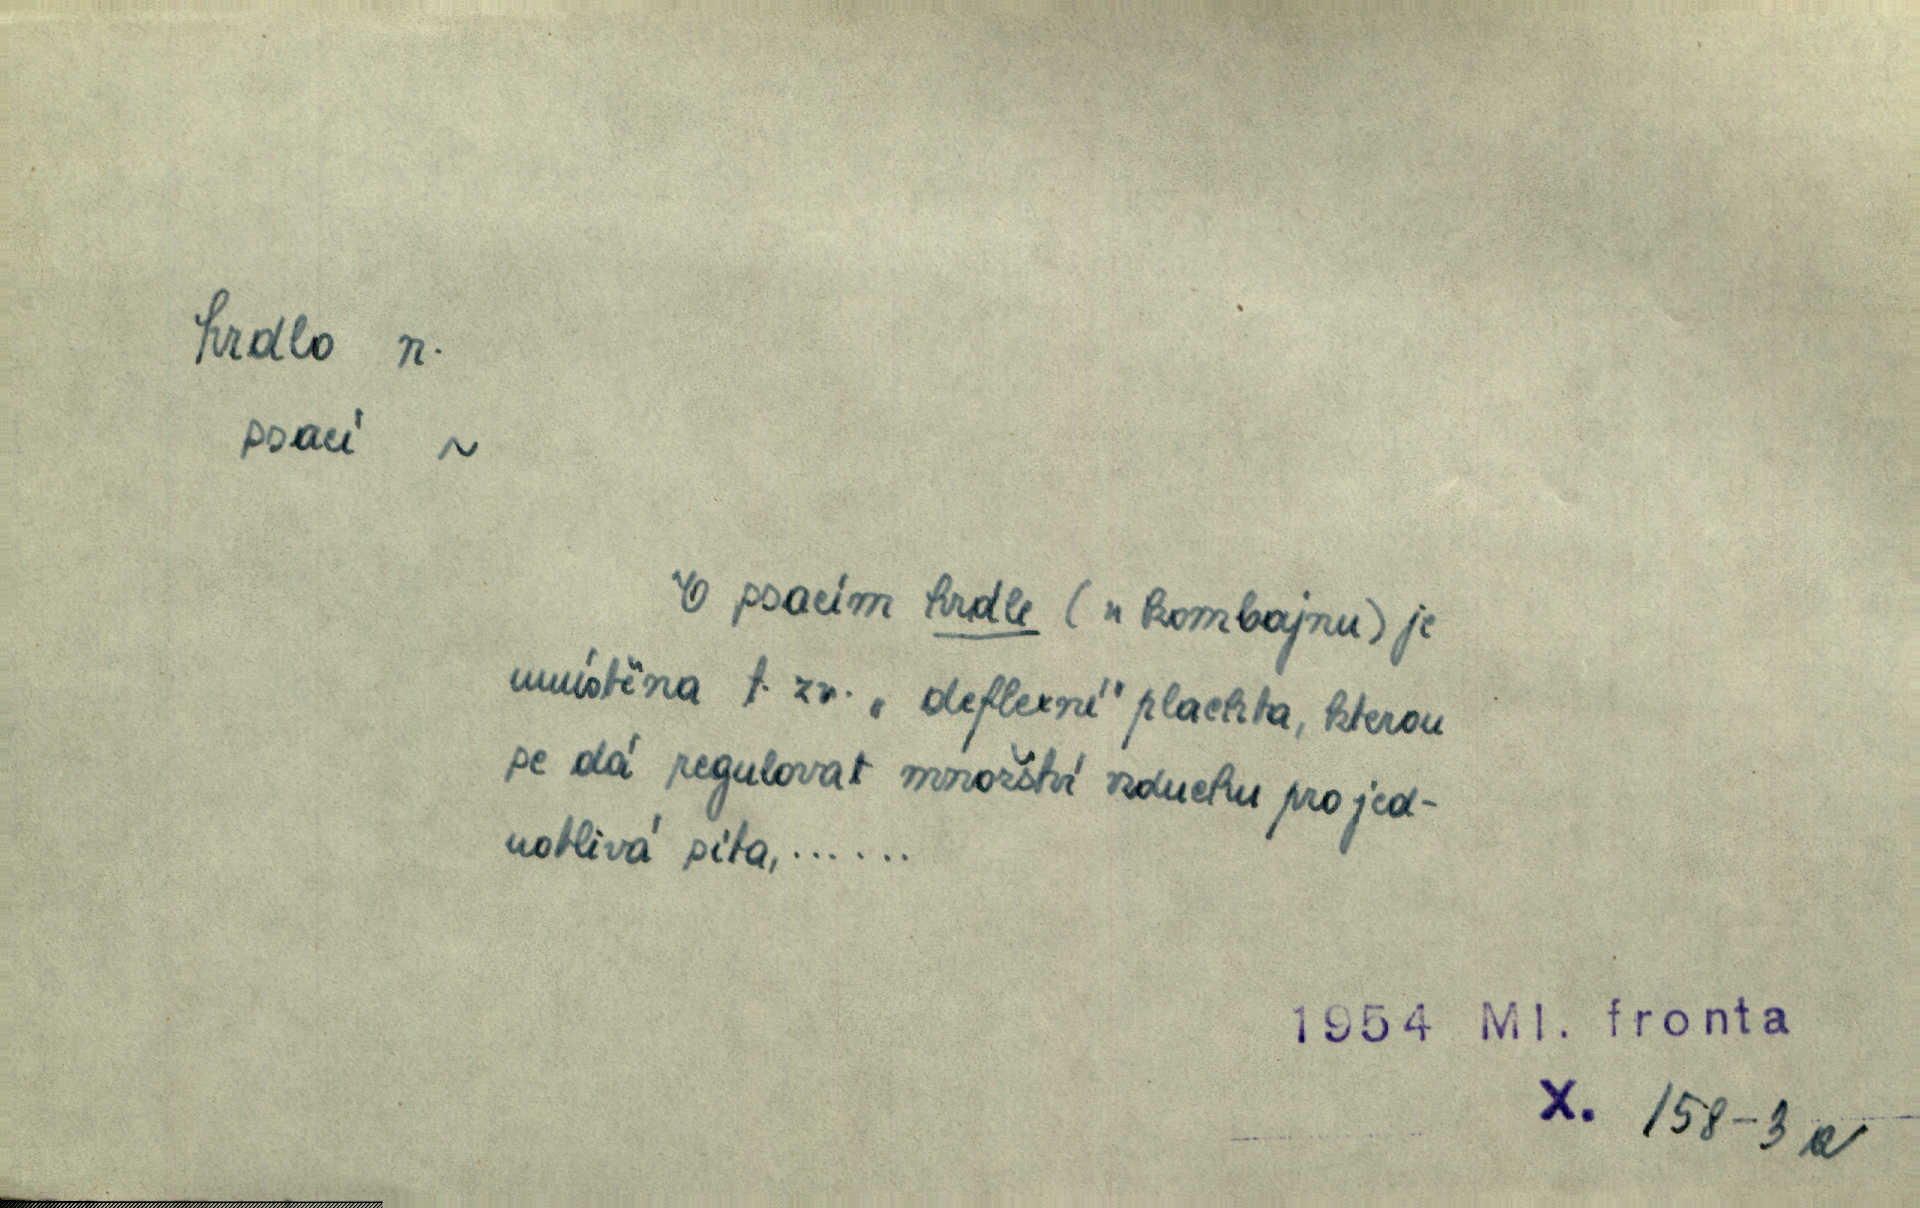 hrdlo n.
ssací ~
V ssacím hrdle (u kombajnu) je
umístěna t. zv. „deflexní" plachta, kterou
se dá regulovat množství vzduchu pro jed-
notlivá síta, ......
1954 Ml. fronta
X. 158-3